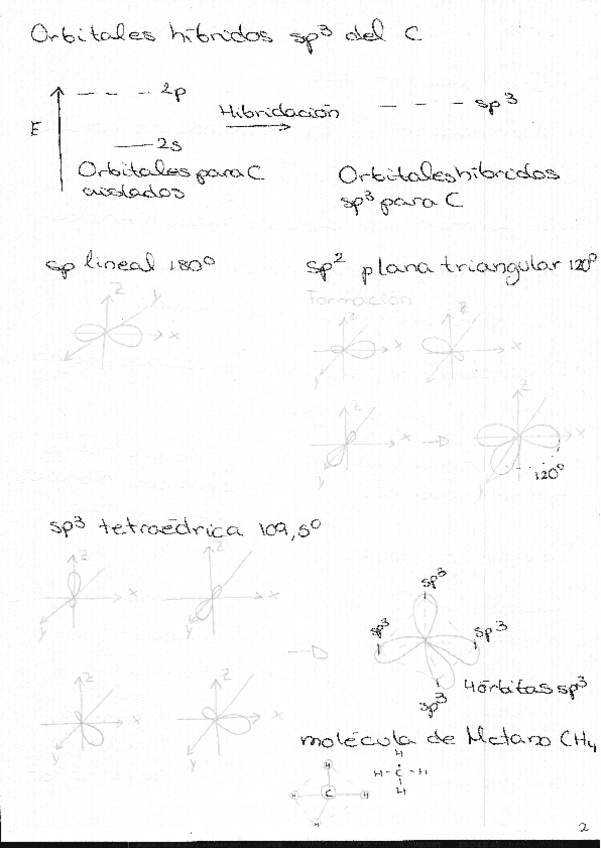 Orbitales híbridos sp³ del C
E
2p
2s
Orbitales para C
aislados
Hibridación
sp³
Orbitales híbridos
sp³ para C
sp lineal 180°
z y
x
sp² plana triangular 120°
Formación
x
y
z
x
x
z
x
120°
sp³ tetraédrica 109,5°
z
x
y
z
x
y
z
x
y
z
x
y
sp³
sp³
sp³
sp³
4 órbitas sp³
molécula de Metano CH₄
H
H
C
H
H
H
H-C-H
H
2